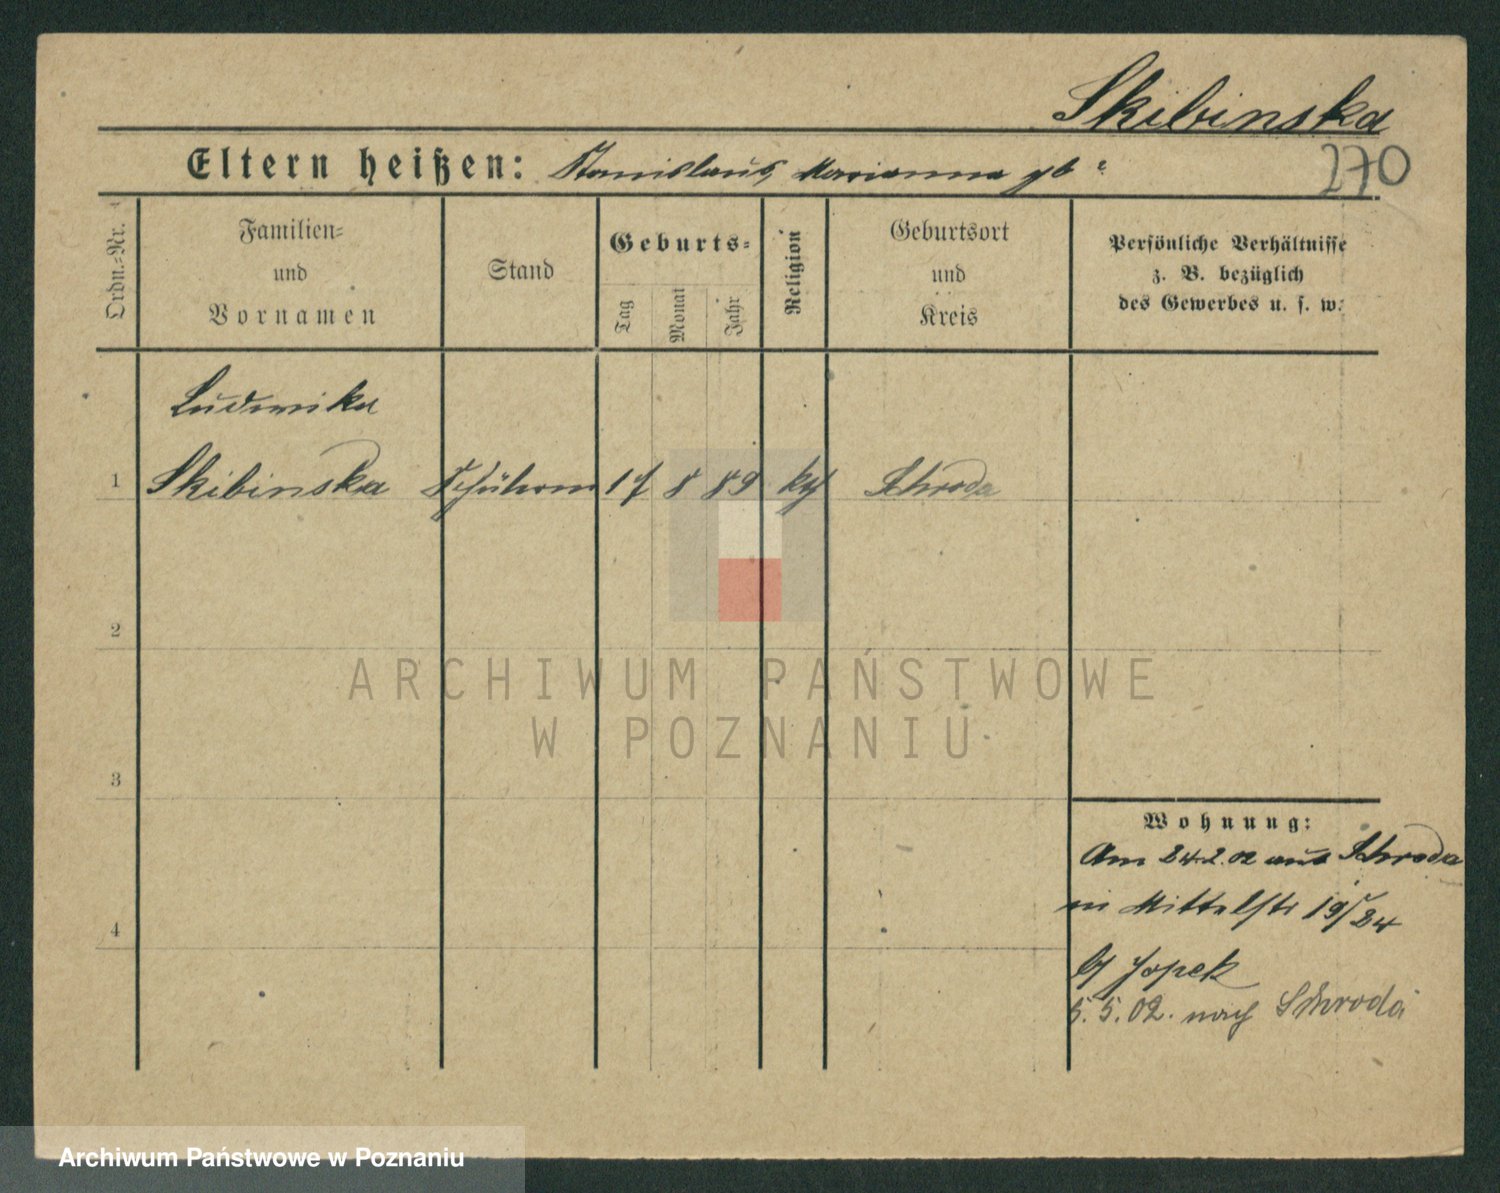 Skibinska
Eltern heißen: Stanislaus, Marianna gb
270
Ordn.-Nr.
Familien-
und
Vornamen
Stand
Geburts-
Tag
Monat
Jahr
Religion
Geburtsort
und
Kreis
Persönliche Verhältnisse
z. B. bezüglich
des Gewerbes u. s. w.
Ludwika
1 Skibinska 17 8 89 kth Schroda
2
3
4
ARCHIWUM PAŃSTWOWE
W POZNANIU
Wohnung:
Am 24.2.02 aus Schroda
in Mittelstr 19/24
b/ Jopek
5.5.02. nach Schroda
Archiwum Państwowe w Poznaniu